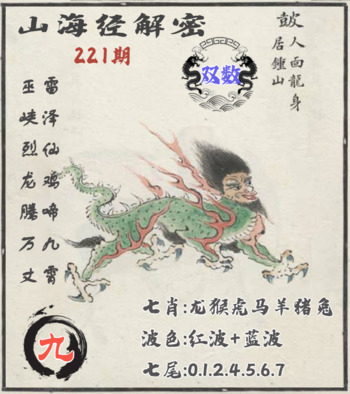 山海经解密
221期
双数
鼓
人面龍身
居鍾山
雷泽仙鸡啼九霄
巫峡烈龙腾万丈
九
七肖:龙猴虎马羊猪兔
波色:红波+蓝波
七尾:0.1.2.4.5.6.7